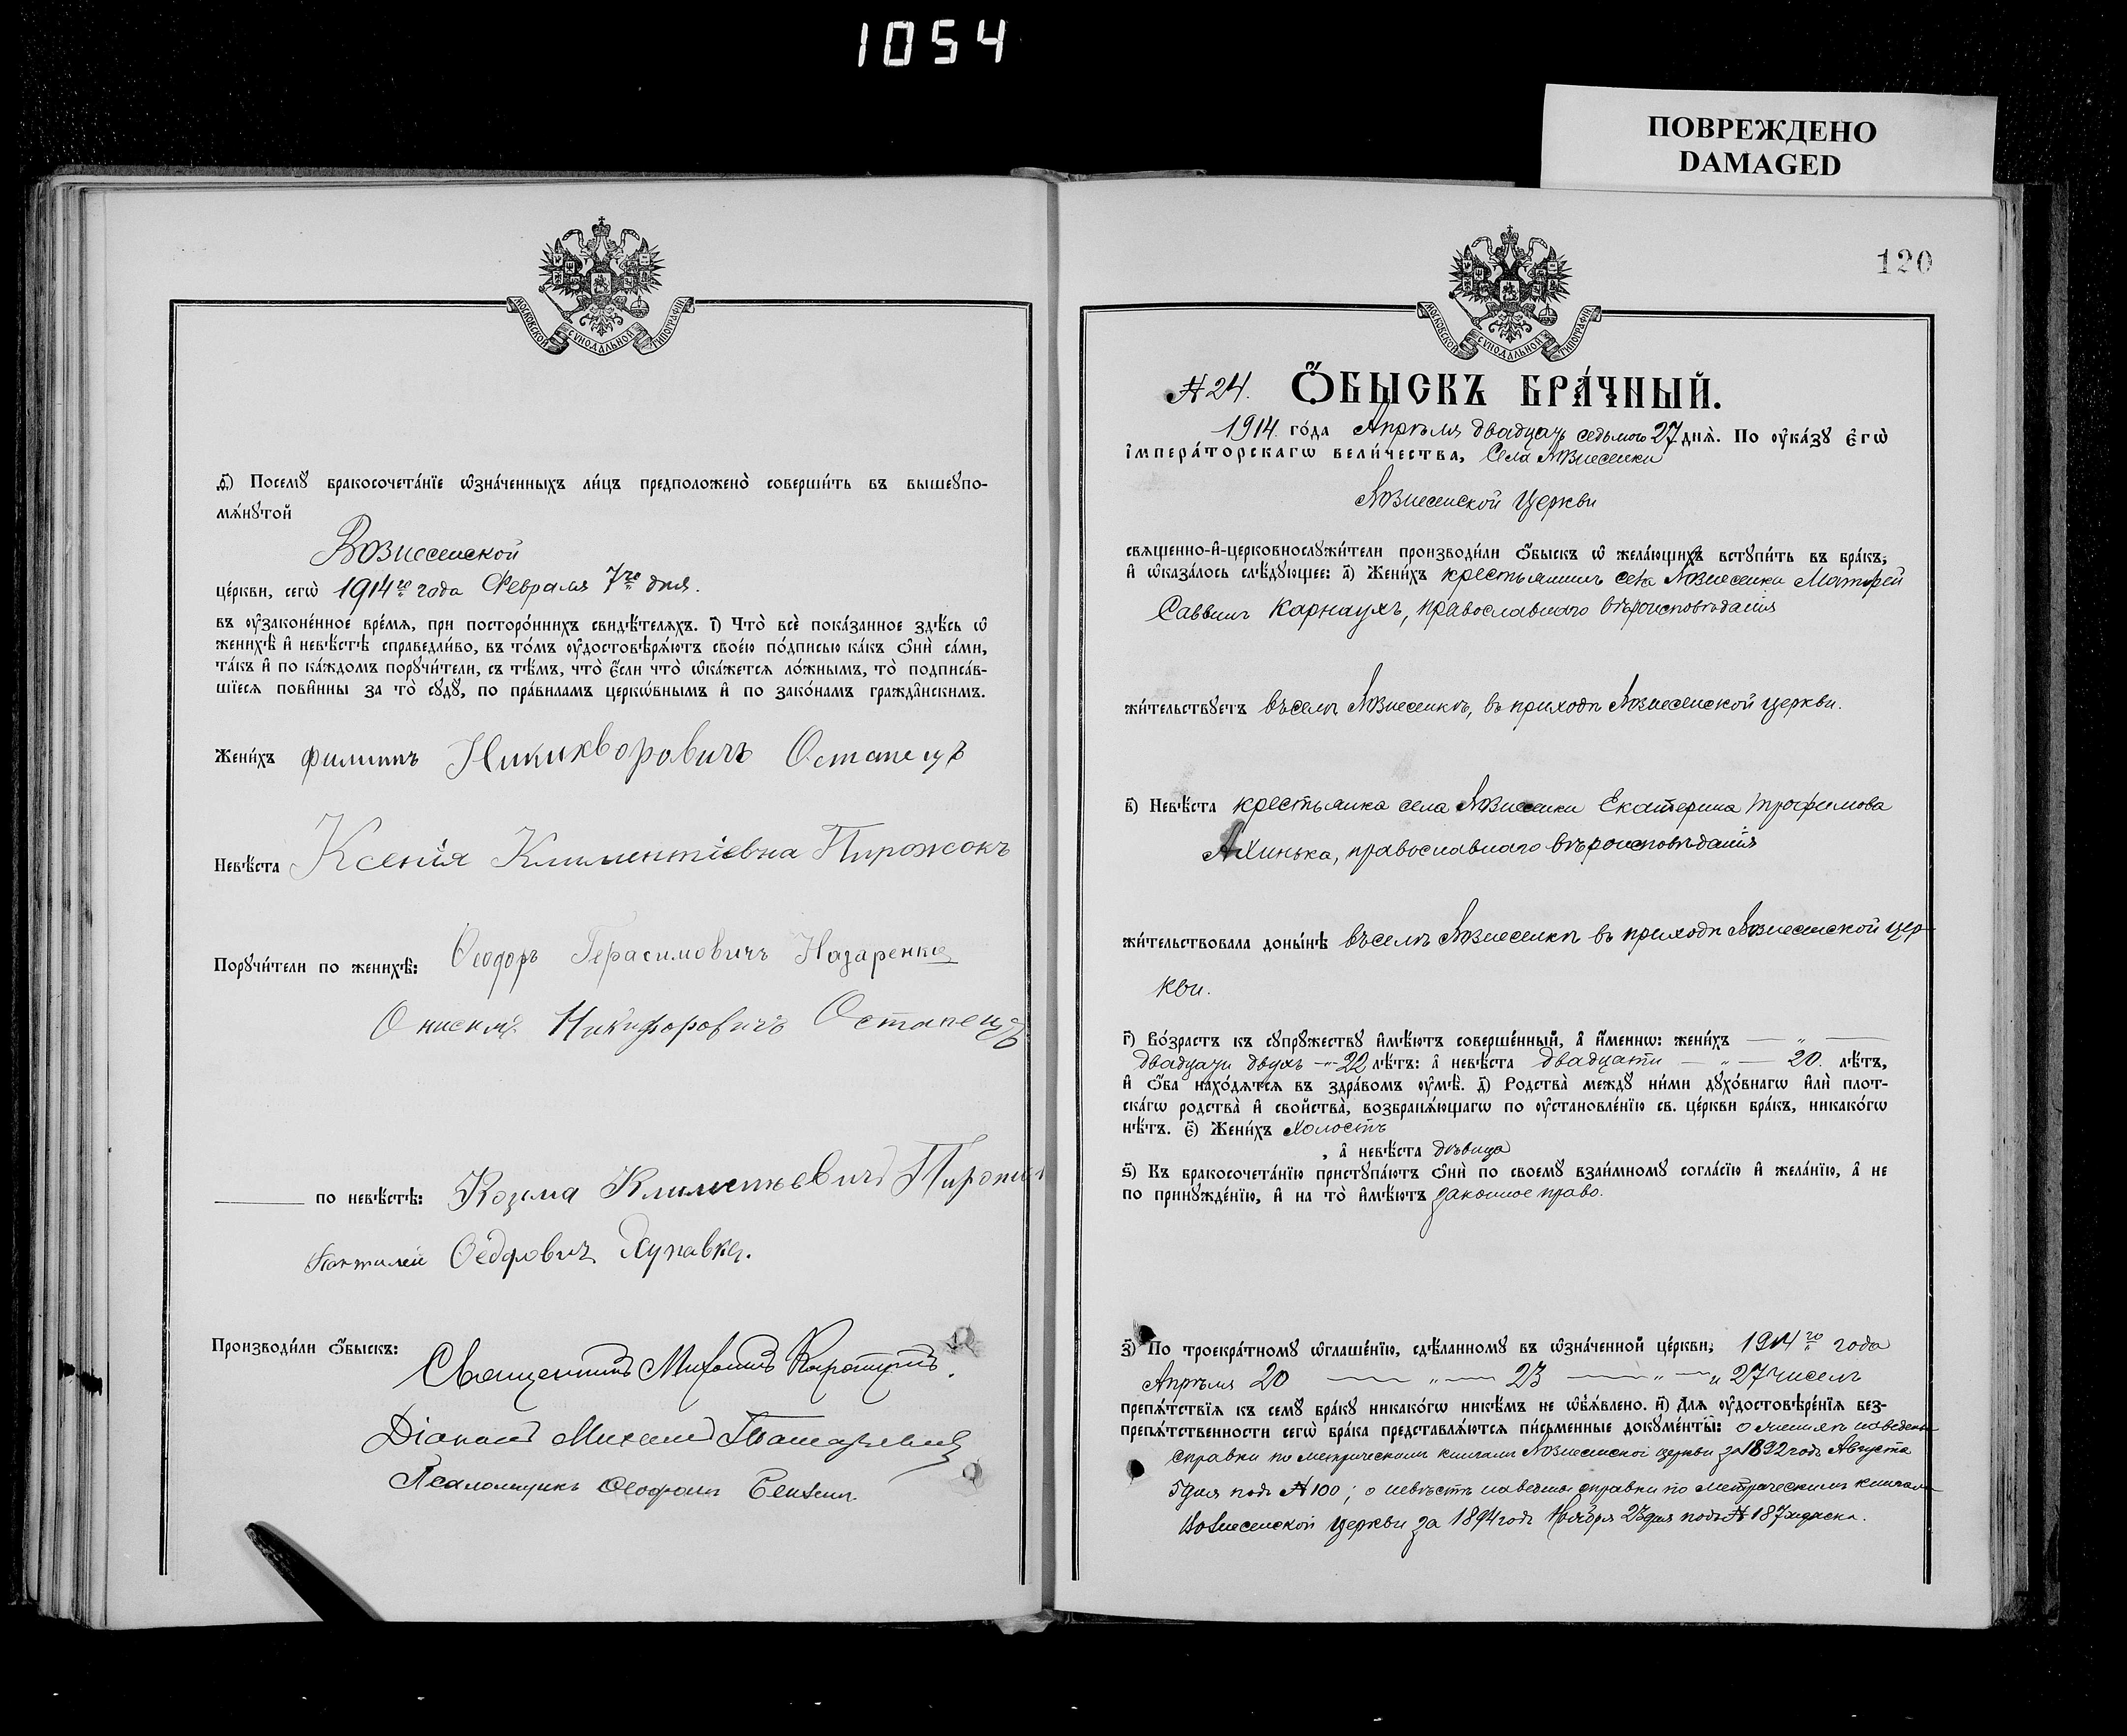 1054
ПОВРЕЖДЕНО
DAMAGED
МОСКОВСКОЙ СѴНОДАЛЬНОЙ ТИПОГРАФІИ
ѳ҃) Посемꙋ бракосочета́нїе ѡ҆зна́ченныхъ ли́цъ предположено̀ соверши́ть въ вышеꙋпо-
мѧ́нꙋтой
Вознесенской
це́ркви, сегѡ̀ 1914го года Февраля 7го дня.
въ оу҆законе́нное вре́мѧ, при посторо́ннихъ свидѣ́телѧхъ. і҃) Что̀ всѐ пока́занное здѣ́сь ѡ҆
женихѣ̀ и҆ невѣ́стѣ справедли́во, въ то́мъ оу҆достовѣрѧ́ютъ свое́ю по́дписью ка́къ ѻ҆нѝ са́ми,
та́къ и҆ по ка́ждомъ порꙋчи́тели, съ тѣ́мъ, что̀ є҆́сли что̀ ѡ҆ка́жетсѧ ло́жнымъ, то̀ подписа́в-
шїесѧ пови́нны за то̀ сꙋдꙋ̀, по пра́виламъ церко́внымъ и҆ по зако́намъ гражда́нскимъ.
Жени́хъ Филиппъ Никикворовичъ Остапецъ
Невѣ́ста Ксенія Климентіевна Пирожокъ
Порꙋчи́тели по женихѣ̀: Ѳеодоръ Герасимовичъ Назаренко
Онисимъ Никифоровичъ Остапецъ
по невѣ́стѣ: Козма Климентьевичъ
Пантилей Ѳедоровичъ
Производи́ли ѻ҆́быскъ: Священникъ Михаилъ
Діаконъ Михаилъ
Псаломщикъ Ѳеофанъ
МОСКОВСКОЙ СѴНОДАЛЬНОЙ ТИПОГРАФІИ
120
№ 24. Ѻ҆́БЫСКЪ БРА́ЧНЫЙ.
1914. го́да Апрѣля двадцать седьмого 27 днѧ̀. По оу҆ка́зꙋ є҆гѡ̀
і҆мпера́торскагѡ вели́чества, Села Вознесенки
Вознесенской Церкви
свѧще́нно-и҆-церковнослꙋжи́тели производи́ли ѻ҆́быскъ ѡ҆ жела́ющихъ встꙋпи́ть въ бра́къ,
и҆ ѡ҆каза́лось слѣ́дꙋющее: а҃) Жени́хъ крестьянинъ села Вознесенки Матфей
Саввинъ Карнаухъ, православнаго вѣроисповѣданія
жи́тельствꙋетъ въ селѣ Вознесенкѣ, въ приходѣ Вознесенской церкви.
в҃) Невѣ́ста крестьянка села Вознесенки Екатерина Трофимова
Ахинька, православнаго вѣроисповѣданія
жи́тельствовала доны́нѣ въ селѣ Вознесенкѣ въ приходѣ Вознесенской цер-
кви.
г҃) Во́зрастъ къ сꙋпрꙋ́жествꙋ и҆мѣ́ютъ соверше́нный, а҆ и҆́меннѡ: жени́хъ — „ —
двадцати двухъ — „ 22 лѣ́тъ: а҆ невѣ́ста двадцати — „ — 20. лѣ́тъ,
и҆ ѻ҆́ба нахо́дѧтсѧ въ здра́вомъ оу҆мѣ̀. д҃) Родства̀ междꙋ ни́ми дꙋхо́внагѡ и҆лѝ плот-
ска́гѡ родства̀ и҆ свойства̀, возбранѧ́ющагѡ по оу҆становле́нїю св. це́ркви бра́къ, никако́гѡ
нѣ́тъ. є҃) Жени́хъ холостъ
, а҆ невѣ́ста дѣвица
ѕ҃) Къ бракосочета́нїю пристꙋпа́ютъ ѻ҆нѝ по своемꙋ̀ взаи́мномꙋ согла́сїю и҆ жела́нїю, а҆ не
по принꙋжде́нїю, и҆ на то̀ и҆мѣ́ютъ законное право.
з҃) По троекра́тномꙋ ѡ҆глаше́нїю, сдѣ́ланномꙋ въ ѡ҆зна́ченной це́ркви, 1914го года
Апрѣля 20 — „ — 23 — „ — и 27 чиселъ
препѧ́тствїѧ къ семꙋ̀ бра́кꙋ никако́гѡ никѣ́мъ не ѡ҆б̾ѧ́влено. и҃) Длѧ̀ оу҆достовѣре́нїѧ без-
препѧ́тственности сегѡ̀ бра́ка представлѧ́ютсѧ пи́сьменные докꙋме́нты: о женихѣ наведены
справки по метрическимъ книгамъ Вознесенской церкви за 1892 годъ Августа
5 дня подъ № 100; о невѣстѣ наведены справки по метрическимъ книгамъ
Вознесенской церкви за 1894 годъ Ноября 23 дня подъ № 187